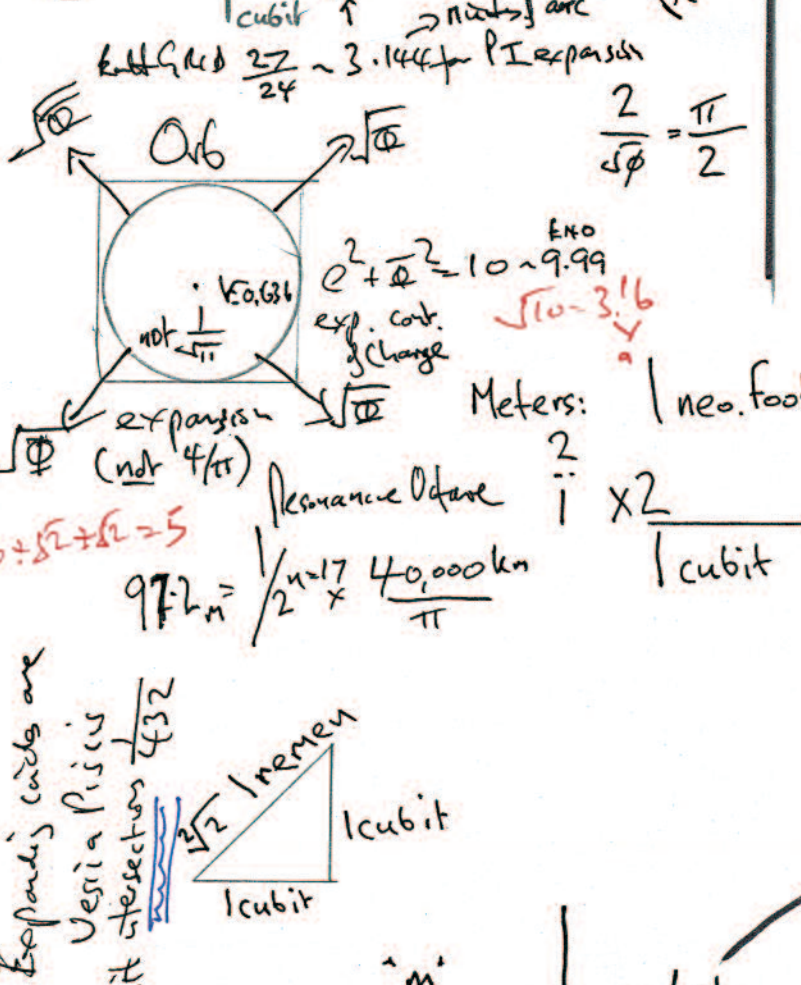 1 cubit ↑
27/24 ~ 3.144 for PI expansion
√Φ
Orb
√Φ
2/√φ = π/2
r=0,636
not 1/√π
e² + Φ² = 10 ~ 9.99
exp. cont.
of Change
√10 ~ 3.16
√Φ
expansion
(not 4/π)
√Φ
Meters:
1 neo. foo
2
:
1
x2
1 cubit
Resonance Octave
÷√2 ÷√2 = 5
97.2m = 1/2ⁿ⁼¹⁷ x 40,000km/π
Expanding circles are
Vesica Piscis
intersections 1/432
²√2 1 remen
1 cubit
1 cubit
"m"